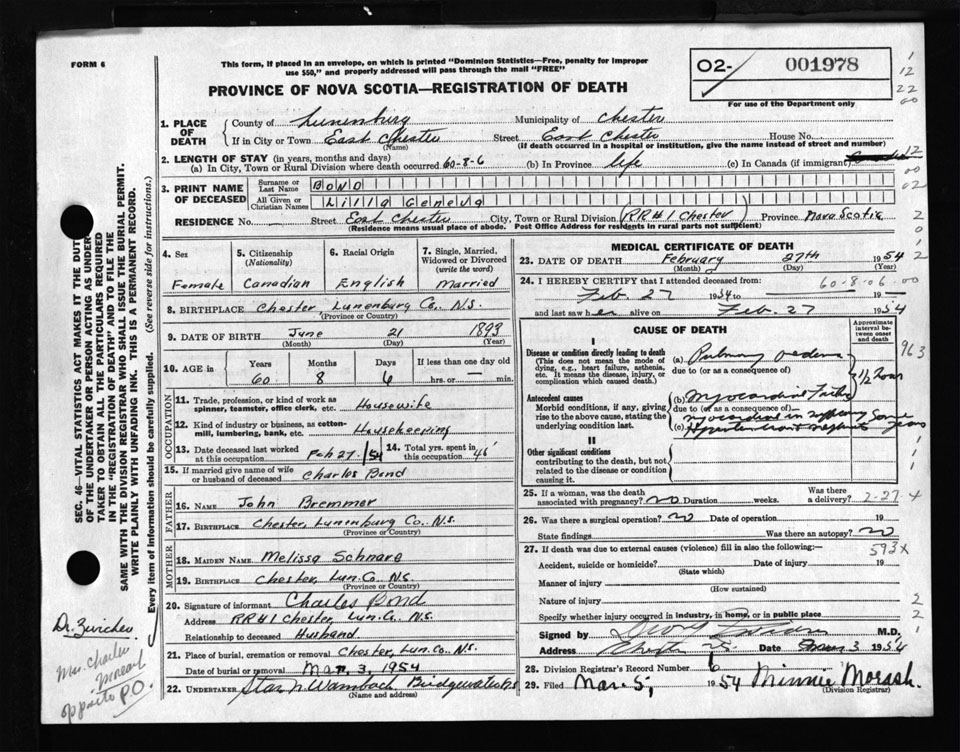 FORM 6
This form, if placed in an envelope, on which is printed "Dominion Statistics—Free, penalty for improper
use $50," and properly addressed will pass through the mail "FREE"
02-
001978
For use of the Department only
PROVINCE OF NOVA SCOTIA—REGISTRATION OF DEATH
1. PLACE OF DEATH
County of Lunenburg Municipality of Chester
If in City or Town East Chester Street East Chester House No.
(Name) (If death occurred in a hospital or institution, give the name instead of street and number)
2. LENGTH OF STAY (in years, months and days)
(a) In City, Town or Rural Division where death occurred 60-8-6 (b) In Province life (c) In Canada (if immigrant)
3. PRINT NAME OF DECEASED
Surname or Last Name BOND
All Given or Christian Names Lilla Geneva
RESIDENCE No. Street East Chester City, Town or Rural Division (RR#1 Chester) Province Nova Scotia
(Residence means usual place of abode. Post Office Address for residents in rural parts not sufficient)
4. Sex
Female
5. Citizenship (Nationality)
Canadian
6. Racial Origin
English
7. Single, Married, Widowed or Divorced (write the word)
Married
8. BIRTHPLACE Chester, Lunenburg Co., N.S.
(Province or Country)
9. DATE OF BIRTH June 21 1893
(Month) (Day) (Year)
10. AGE in Years Months Days If less than one day
60 8 6 hrs. or — min.
OCCUPATION
11. Trade, profession, or kind of work as
spinner, teamster, office clerk, etc. Housewife
12. Kind of industry or business, as cotton-
mill, lumbering, bank, etc. Housekeeping
13. Date deceased last worked at this occupation Feb 27/54
14. Total yrs. spent in this occupation 46
15. If married give name of wife
or husband of deceased Charles Bond
FATHER
16. NAME John Bremner
17. BIRTHPLACE Chester, Lunenburg Co., N.S.
(Province or Country)
MOTHER
18. MAIDEN NAME Melissa Schnare
19. BIRTHPLACE Chester, Lun. Co., N.S.
(Province or Country)
20. Signature of informant Charles Bond
Address RR#1 Chester, Lun. Co., N.S.
Relationship to deceased Husband
21. Place of burial, cremation or removal Chester, Lun. Co. N.S.
Date of burial or removal Mar. 3, 1954
22. UNDERTAKER Stan N. Wambach Bridgewater N.S.
(Name and address)
MEDICAL CERTIFICATE OF DEATH
23. DATE OF DEATH February 27th 1954
(Month) (Day) (Year)
24. I HEREBY CERTIFY that I attended deceased from:
60-8-06-00
Feb 27 1954 to 19
and last saw her alive on Feb. 27 1954
CAUSE OF DEATH
Approximate interval between onset and death
I
Disease or condition directly leading to death
(This does not mean the mode of dying, e.g., heart failure, asthenia, etc. It means the disease, injury, or complication which caused death.)
(a) Pulmonary oedema
due to (or as a consequence of)
963
Antecedent causes
Morbid conditions, if any, giving rise to the above cause, stating the underlying condition last.
(b) Myocardial Failure
due to (or as a consequence of)
(c)
II
Other significant conditions
contributing to the death, but not related to the disease or condition causing it.
25. If a woman, was the death associated with pregnancy? no Duration weeks. Was there a delivery?
2-27-4
26. Was there a surgical operation? no Date of operation 19
State findings Was there an autopsy? no
27. If death was due to external causes (violence) fill in also the following:—
593X
Accident, suicide or homicide? Date of injury 19
(State which)
Manner of injury
(How sustained)
Nature of injury
Specify whether injury occurred in industry, in home, or in public place
Signed by M.D.
Address Chester N.S. Date Mar 3 1954
28. Division Registrar's Record Number 6
29. Filed Mar. 5, 1954 Minnie Morash
(Division Registrar)
SEC. 46—VITAL STATISTICS ACT MAKES IT THE DUTY
OF THE UNDERTAKER OR PERSON ACTING AS UNDER-
TAKER TO OBTAIN ALL THE PARTICULARS REQUIRED
IN THE "REGISTRATION OF DEATH" AND TO FILE THE
SAME WITH THE DIVISION REGISTRAR WHO SHALL ISSUE THE BURIAL PERMIT.
WRITE PLAINLY WITH UNFADING INK. THIS IS A PERMANENT RECORD.
Every item of information should be carefully supplied. (See reverse side for instructions.)
Dr. Zwicker
Mrs. Charles
opposite P.O.